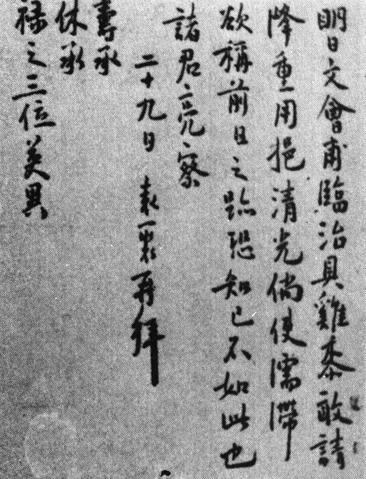 明日文會甫臨治具雞黍敢請
降重用挹清光倘使濡滯
欲稱前日之恐知己不如此也
諸君亮察
二十九日 袁再拜
壽承
休承
祿之三位英異